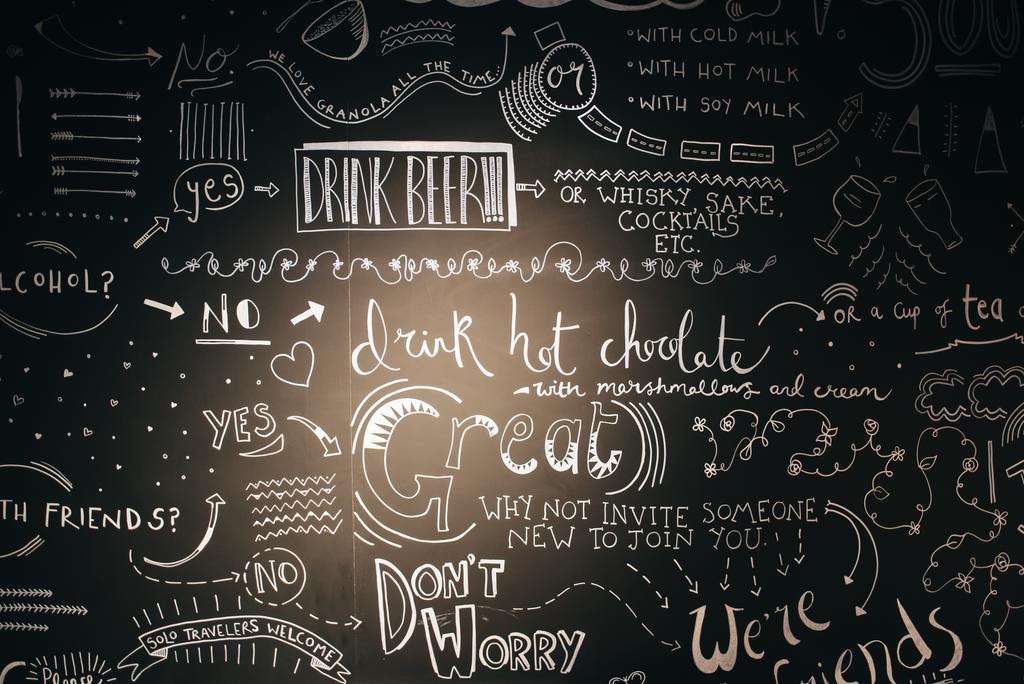 No.
WE LOVE GRANOLA ALL THE TIME...
or
WITH COLD MILK
WITH HOT MILK
WITH SOY MILK
yes
DRINK BEER!!!
OR WHISKY SAKE,
COCKTAILS
ETC.
LCOHOL?
NO
drink hot choolate
with marshmallows and cream
OR a cup of tea
YES
Great
WHY NOT INVITE SOMEONE
NEW TO JOIN YOU.
TH FRIENDS?
NO
SOLO TRAVELERS WELCOME
DON'T
WORRY
We're
friends
Please